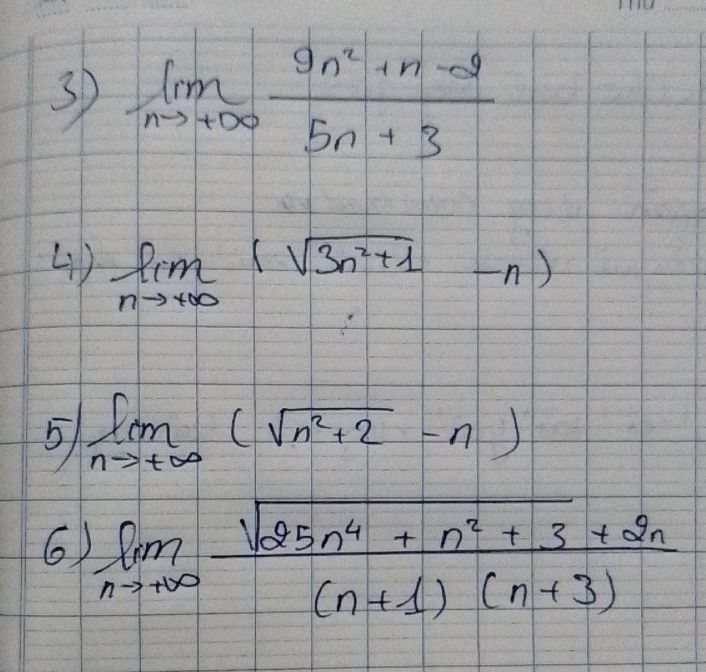 3) lim n→+∞ (9n² + n - 2) / (5n + 3)
4) lim n→+∞ (√(3n²+1) - n)
5) lim n→+∞ (√(n²+2) - n)
6) lim n→+∞ (√(25n⁴ + n² + 3) + 2n) / ((n+1) (n+3))